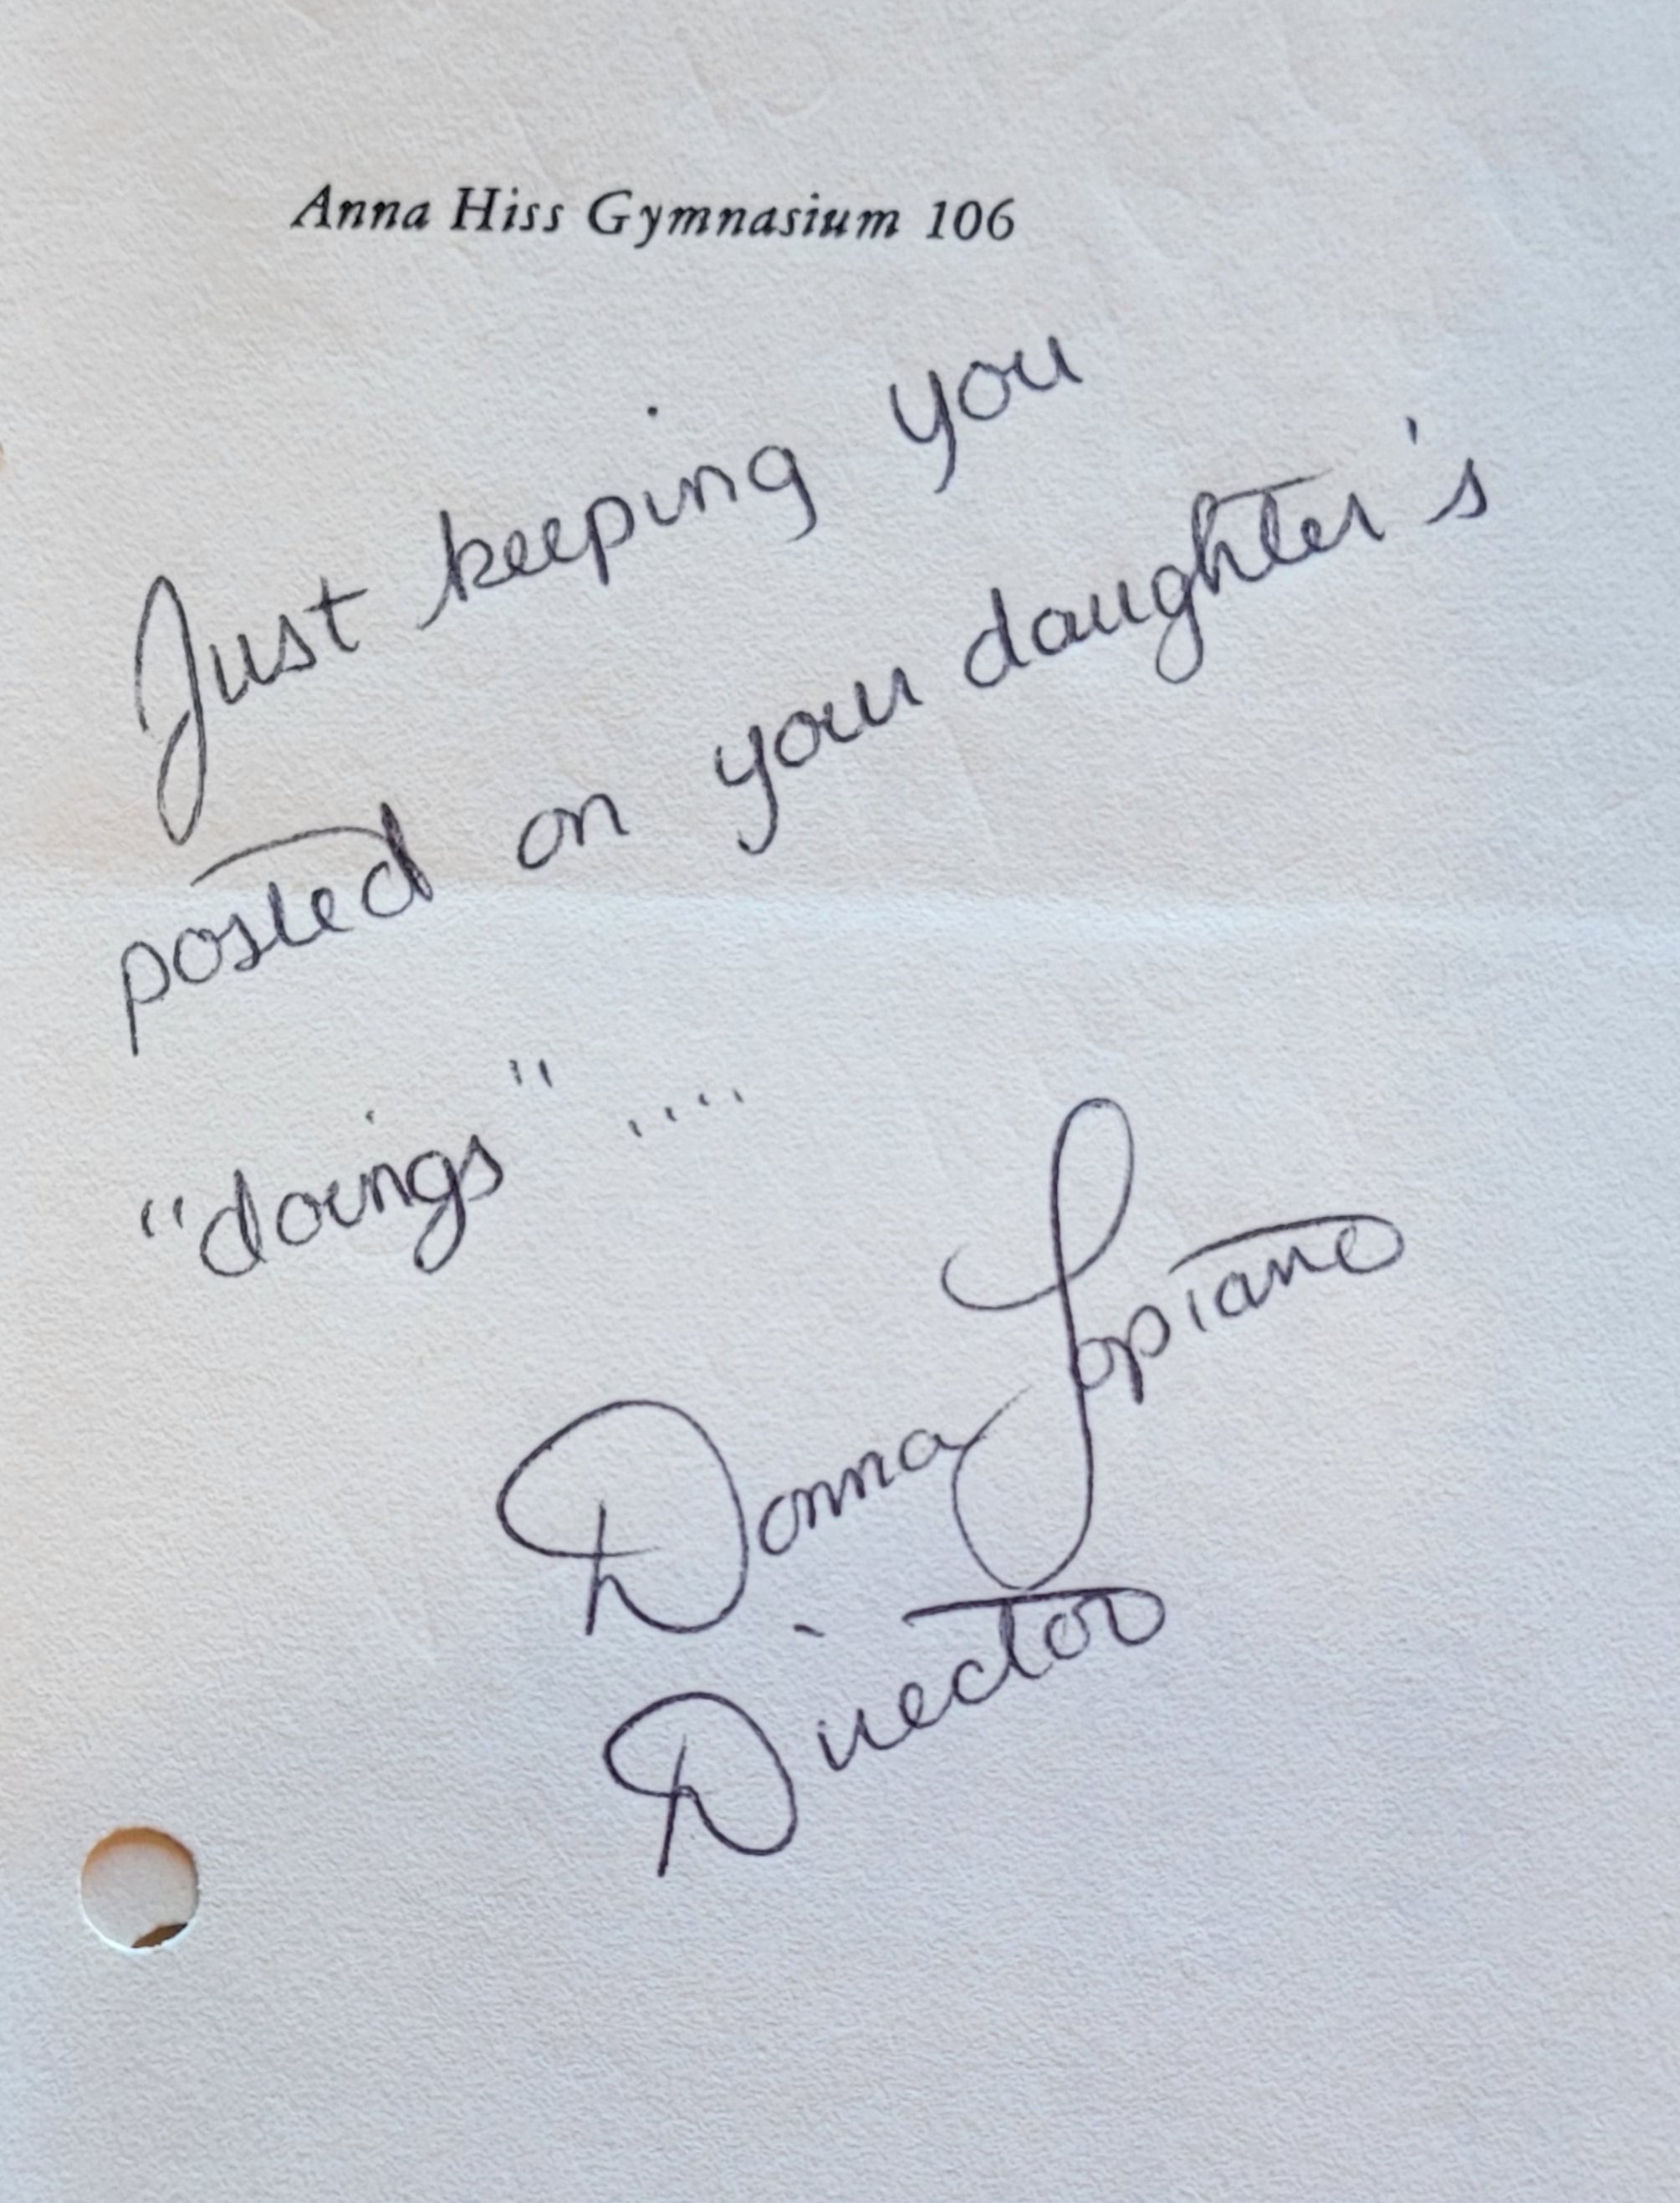 Anna Hiss Gymnasium 106
Just keeping you
posted on your daughter's
"doings" ....
Donna Lopiano
Director